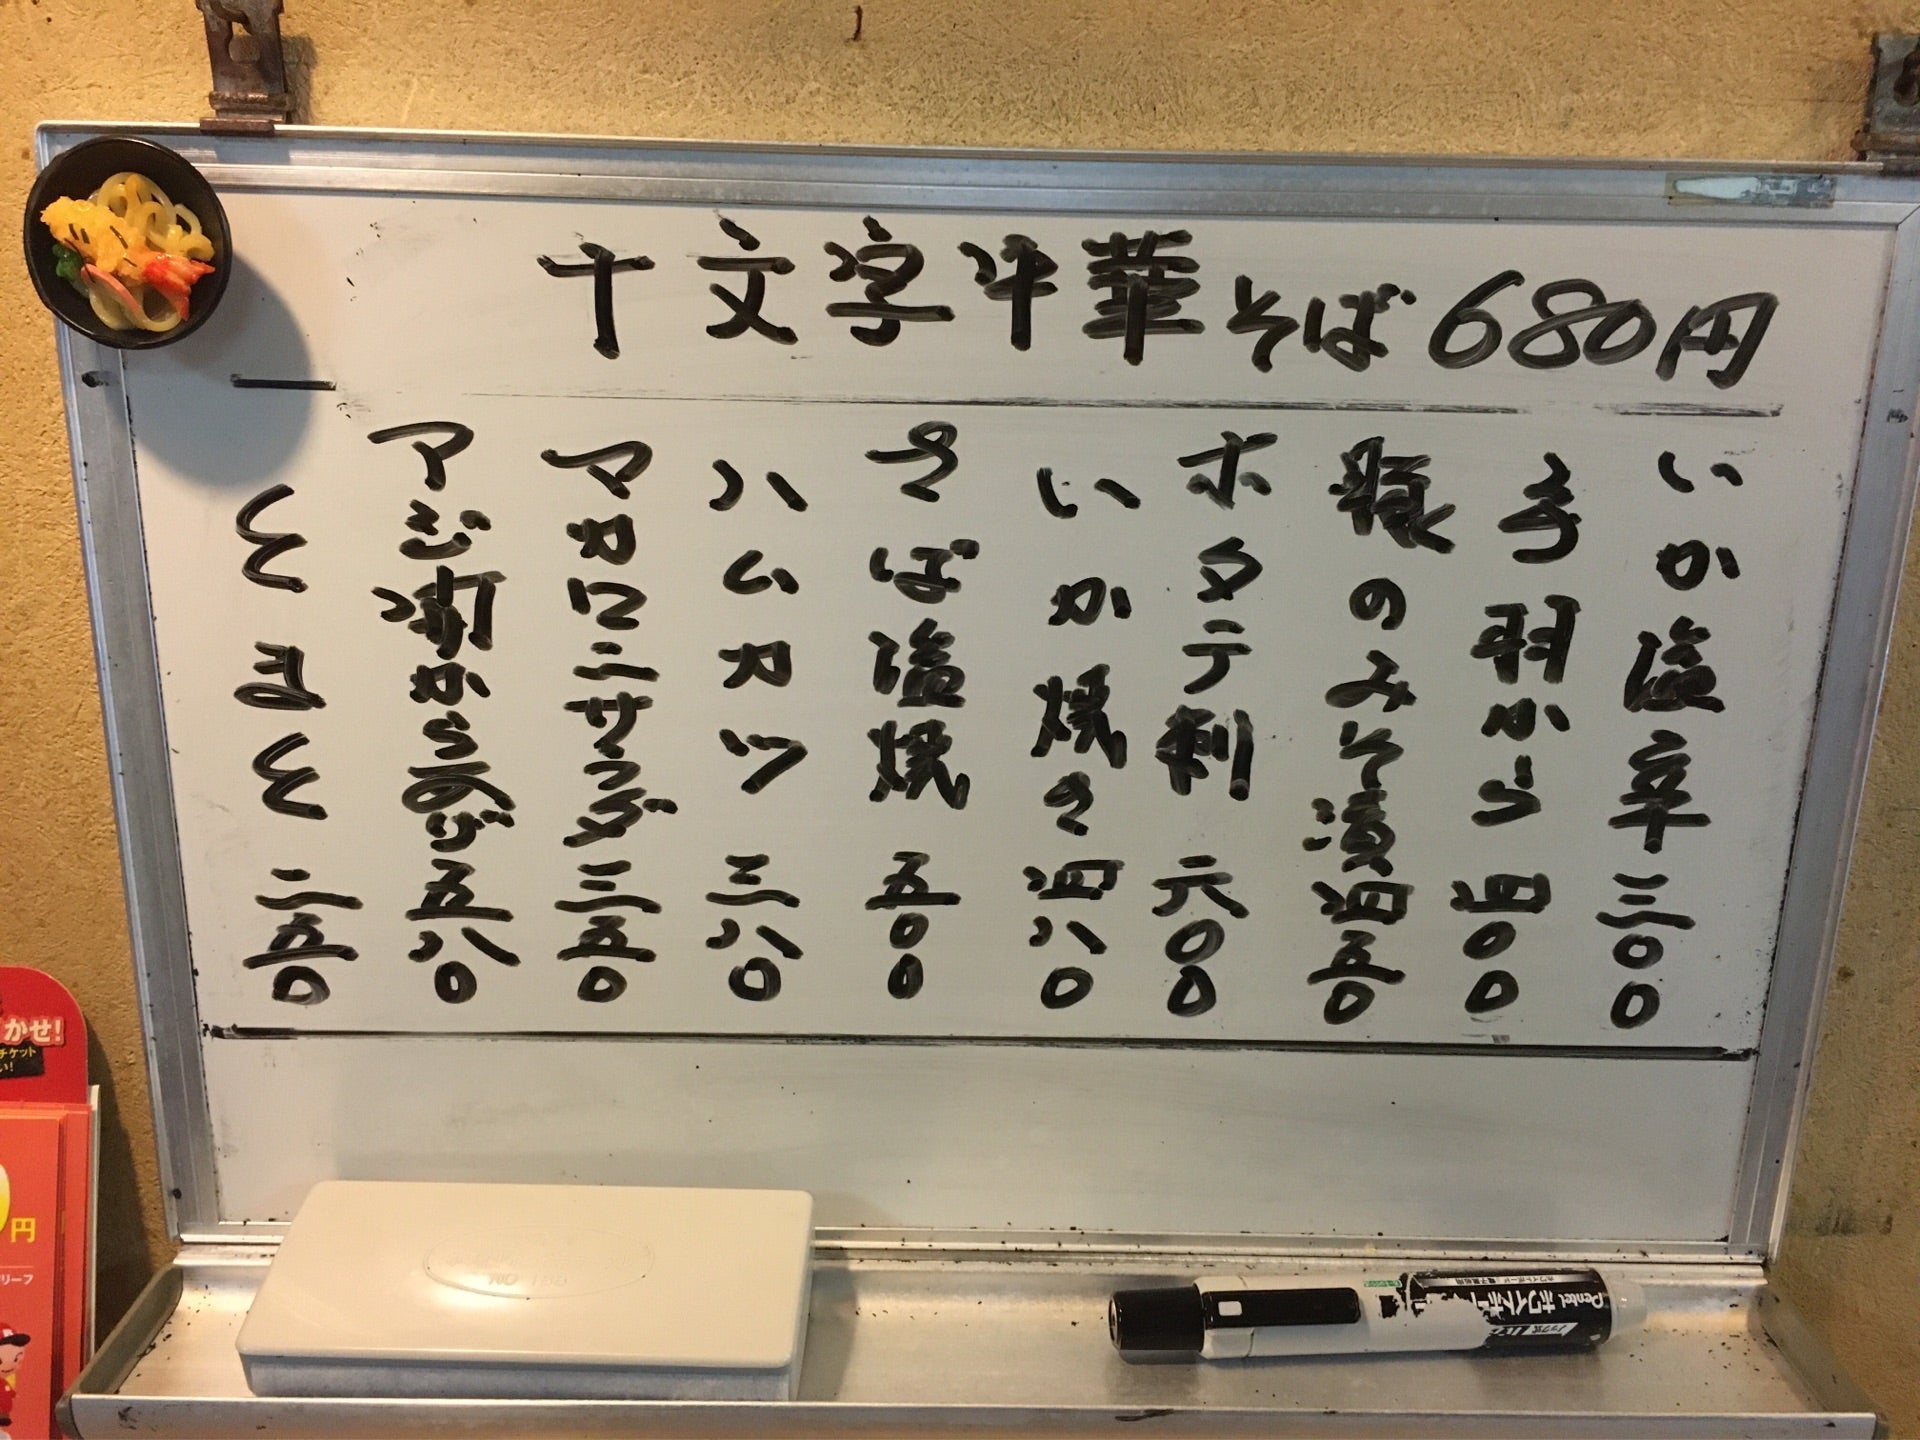 十文字中華そば680円
いか塩辛三〇〇
手羽から四〇〇
豚のみそ漬四五〇
ホタテ刺六〇〇
いか焼き四八〇
さば塩焼五〇〇
ハムカツ三八〇
マカロニサラダ三五〇
アジ南から揚げ五八〇
とまと二五〇
かせ!
チケット
い!
円
リーフ
Pentel ホワイトボードマーカー